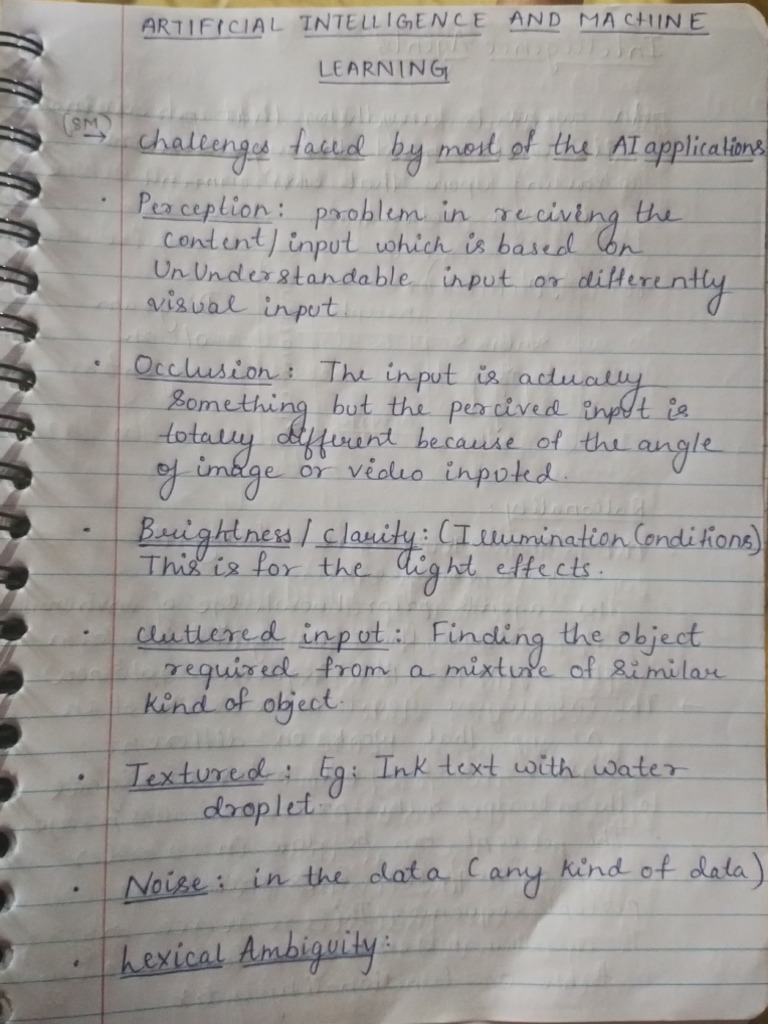 ARTIFICIAL INTELLIGENCE AND MACHINE
LEARNING
(8M) → Challenges faced by most of the AI applications
• Perception: problem in reciving the
content/input which is based on
UnUnderstandable input or differently
visual input.
• Occlusion: The input is actually
something but the percived input is
totally different because of the angle
of image or video inputed.
• Brightness / Clarity: (Illumination Conditions)
This is for the light effects.
• Cluttered input: Finding the object
required from a mixture of similar
kind of object.
• Textured: Eg: Ink text with water
droplet.
• Noise: in the data (any kind of data)
• Lexical Ambiguity: